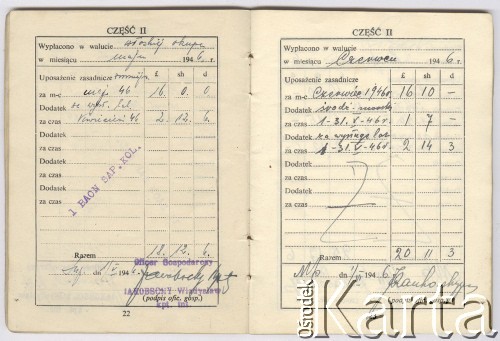 CZĘŚĆ II
Wypłacono w walucie włoskiej okup.
w miesiącu maju 1946 r.
Uposażenie zasadnicze £ s d
za m-c maj 46 16 0 0
Dodatek
za czas kwiecień 46 2 12 6
Dodatek
za czas
Dodatek
za czas
Dodatek
za czas
Dodatek
za czas
1 BAON SAP. KOL.
Razem 18 12 6
Oficer Gospodarczy
M.p. dn 1946
JAKOBSCHY Władysław
kpt. int.
(podpis ofic. gosp.)
22
CZĘŚĆ II
Wypłacono w walucie
w miesiącu Czerwcu 1946 r.
Uposażenie zasadnicze £ s d
za m-c Czerwiec 1946 r. 16 10 —
Dodatek
za czas 1-31.V-46r. 1 7 —
Dodatek za wysługę lat
za czas 1-31.V-46r. 2 14 3
Dodatek
za czas
Dodatek
za czas
Dodatek
za czas
Razem 20 11 3
M.p. dn 1946
(podpis ofic. gosp.)
Ośrodek
Karta